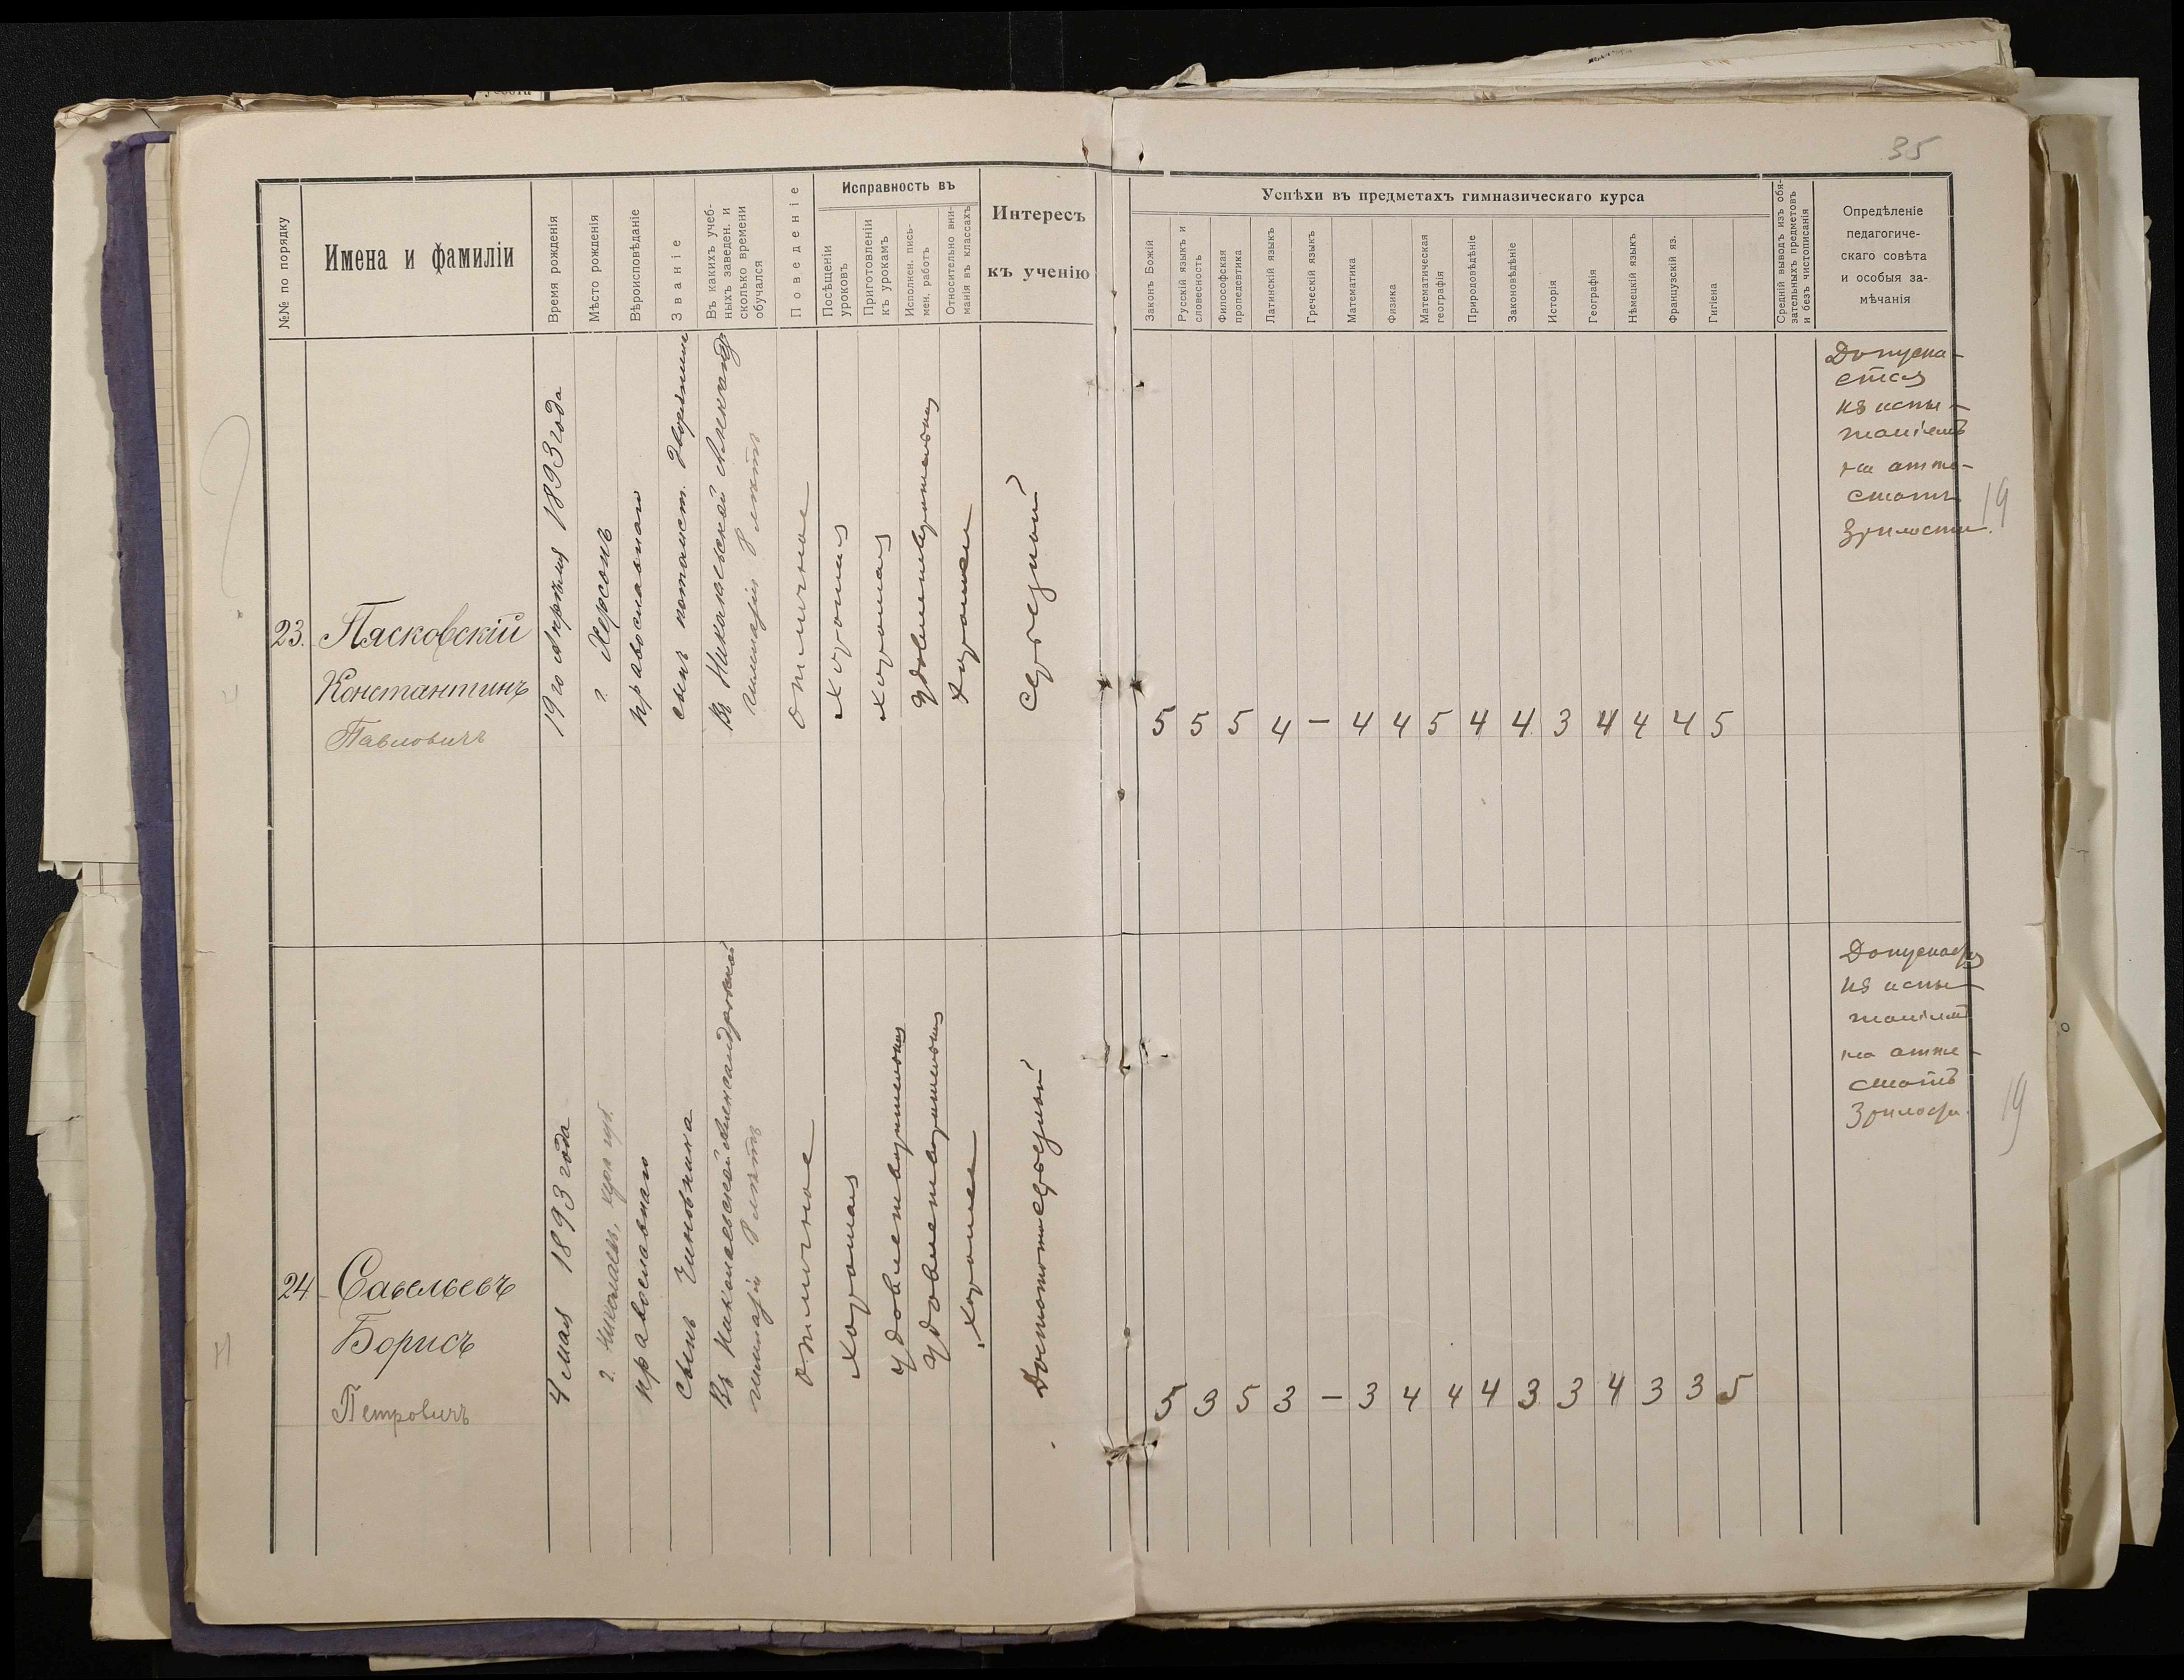 35
№№ по порядку
Имена и фамиліи
Время рожденія
Мѣсто рожденія
Вѣроисповѣданіе
Званіе
Въ какихъ учеб-
ныхъ заведен. и
сколько времени
обучался
Поведеніе
Исправность въ
Посѣщеніи
уроковъ
Приготовленіи
къ урокамъ
Исполнен. пись-
мен. работъ
Относительно вни-
манія въ классахъ
Интересъ
къ ученію
Успѣхи въ предметахъ гимназическаго курса
Законъ Божій
Русскій языкъ и
словесность
Философская
пропедевтика
Латинскій языкъ
Греческій языкъ
Математика
Физика
Математическая
географія
Природовѣдѣніе
Законовѣдѣніе
Исторія
Географія
Нѣмецкій языкъ
Французскій яз.
Гигіена
Средній выводъ изъ обя-
зательныхъ предметовъ
и безъ чистописанія
Опредѣленіе
педагогиче-
скаго совѣта
и особыя за-
мѣчанія
23.
Пясковскій
Константинъ
Павловичъ
19го Апрѣля 1893 года
г. Херсонъ
православнаго
сынъ потомст. дворянина
Въ Николаевской
гимназіи 8 лѣтъ
отличное
хорошая
хорошая
удовлетворительная
хорошее
Средній
5 5 5 4 — 4 4 5 4 4 3 4 4 4 5
Допуска-
ется
къ испы-
таніямъ
на атте-
статъ
зрѣлости.
19
24
Савельевъ
Борисъ
Петровичъ
4 мая 1893 года
г. Николаевъ, Херс. губ.
православнаго
Сынъ Чиновника
Въ Николаевской Александровской
гимназіи 8 лѣтъ
отличное
хорошая
удовлетворительная
удовлетворительная
хорошее
средній
5 3 5 3 — 3 4 4 4 3 3 4 3 3 5
Допускается
къ испы-
таніямъ
на атте-
статъ
зрѣлости.
19